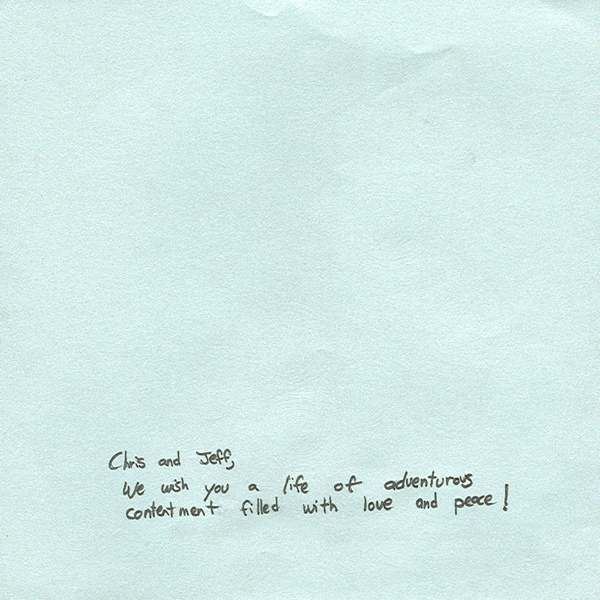 Chris and Jeff,
We wish you a life of adventurous
contentment filled with love and peace!